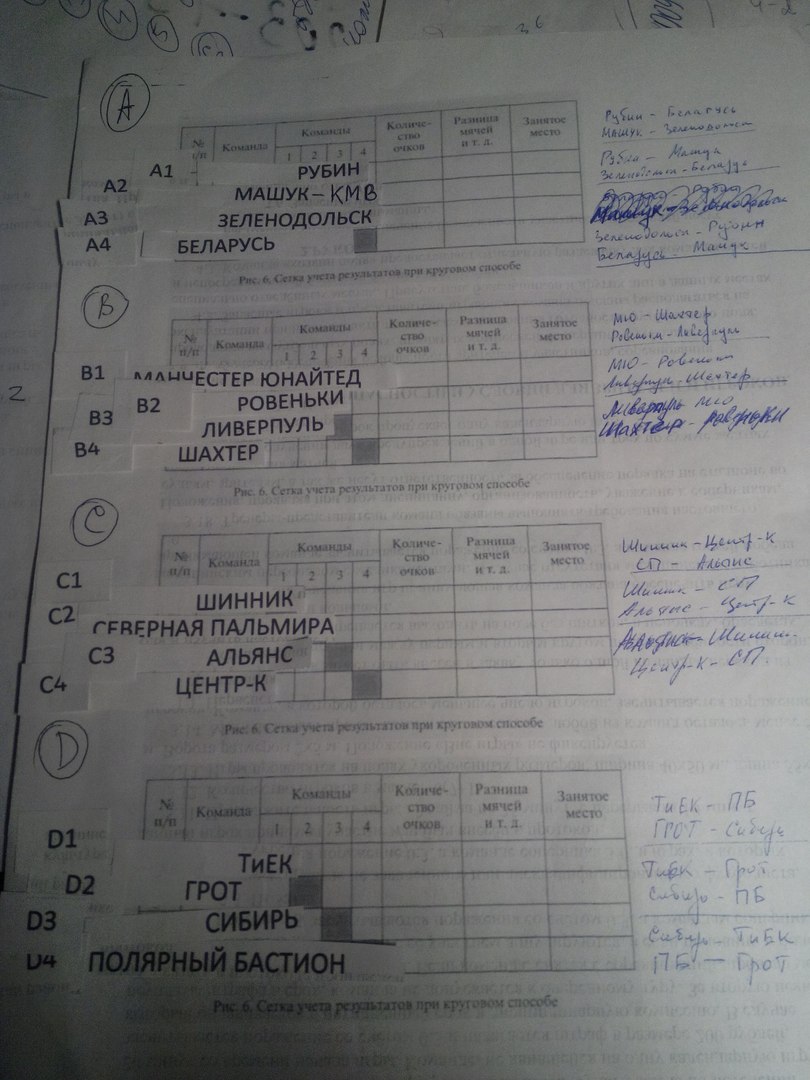 A
№ п/п Команда Команды Количе-ство очков Разница мячей и т. д. Занятое место
1 2 3 4
A1 РУБИН
A2 МАШУК – КМВ
A3 ЗЕЛЕНОДОЛЬСК
A4 БЕЛАРУСЬ
Рис. 6. Сетка учета результатов при круговом способе
Рубин - Беларусь
Машук - Зеленодольск
Рубин - Машук
Зеленодольск - Беларусь
Зеленодольск - Рубин
Беларусь - Машук
2
B
№ п/п Команда Команды Количе-ство очков Разница мячей и т. д. Занятое место
1 2 3 4
B1 МАНЧЕСТЕР ЮНАЙТЕД
B2 РОВЕНЬКИ
B3 ЛИВЕРПУЛЬ
B4 ШАХТЕР
Рис. 6. Сетка учета результатов при круговом способе
МЮ - Шахтер
Ровеньки - Ливерпуль
МЮ - Ровеньки
Ливерпуль - Шахтер
Ливерпуль МЮ
Шахтер - Ровеньки
C
№ п/п Команда Команды Количе-ство очков Разница мячей и т. д. Занятое место
1 2 3 4
C1 ШИННИК
C2 СЕВЕРНАЯ ПАЛЬМИРА
C3 АЛЬЯНС
C4 ЦЕНТР-К
Рис. 6. Сетка учета результатов при круговом способе
Шинник - Центр-К
СП - Альянс
Шинник - СП
Альянс - Центр-К
Альянс - Шинник
Центр-К - СП
D
№ п/п Команда Команды Количе-ство очков Разница мячей и т. д. Занятое место
1 2 3 4
D1 ТиЕК
D2 ГРОТ
D3 СИБИРЬ
D4 ПОЛЯРНЫЙ БАСТИОН
Рис. 6. Сетка учета результатов при круговом способе
ТиЕК - ПБ
ГРОТ - Сибирь
ТиЕК - Грот
Сибирь - ПБ
Сибирь - ТиЕК
ПБ - Грот